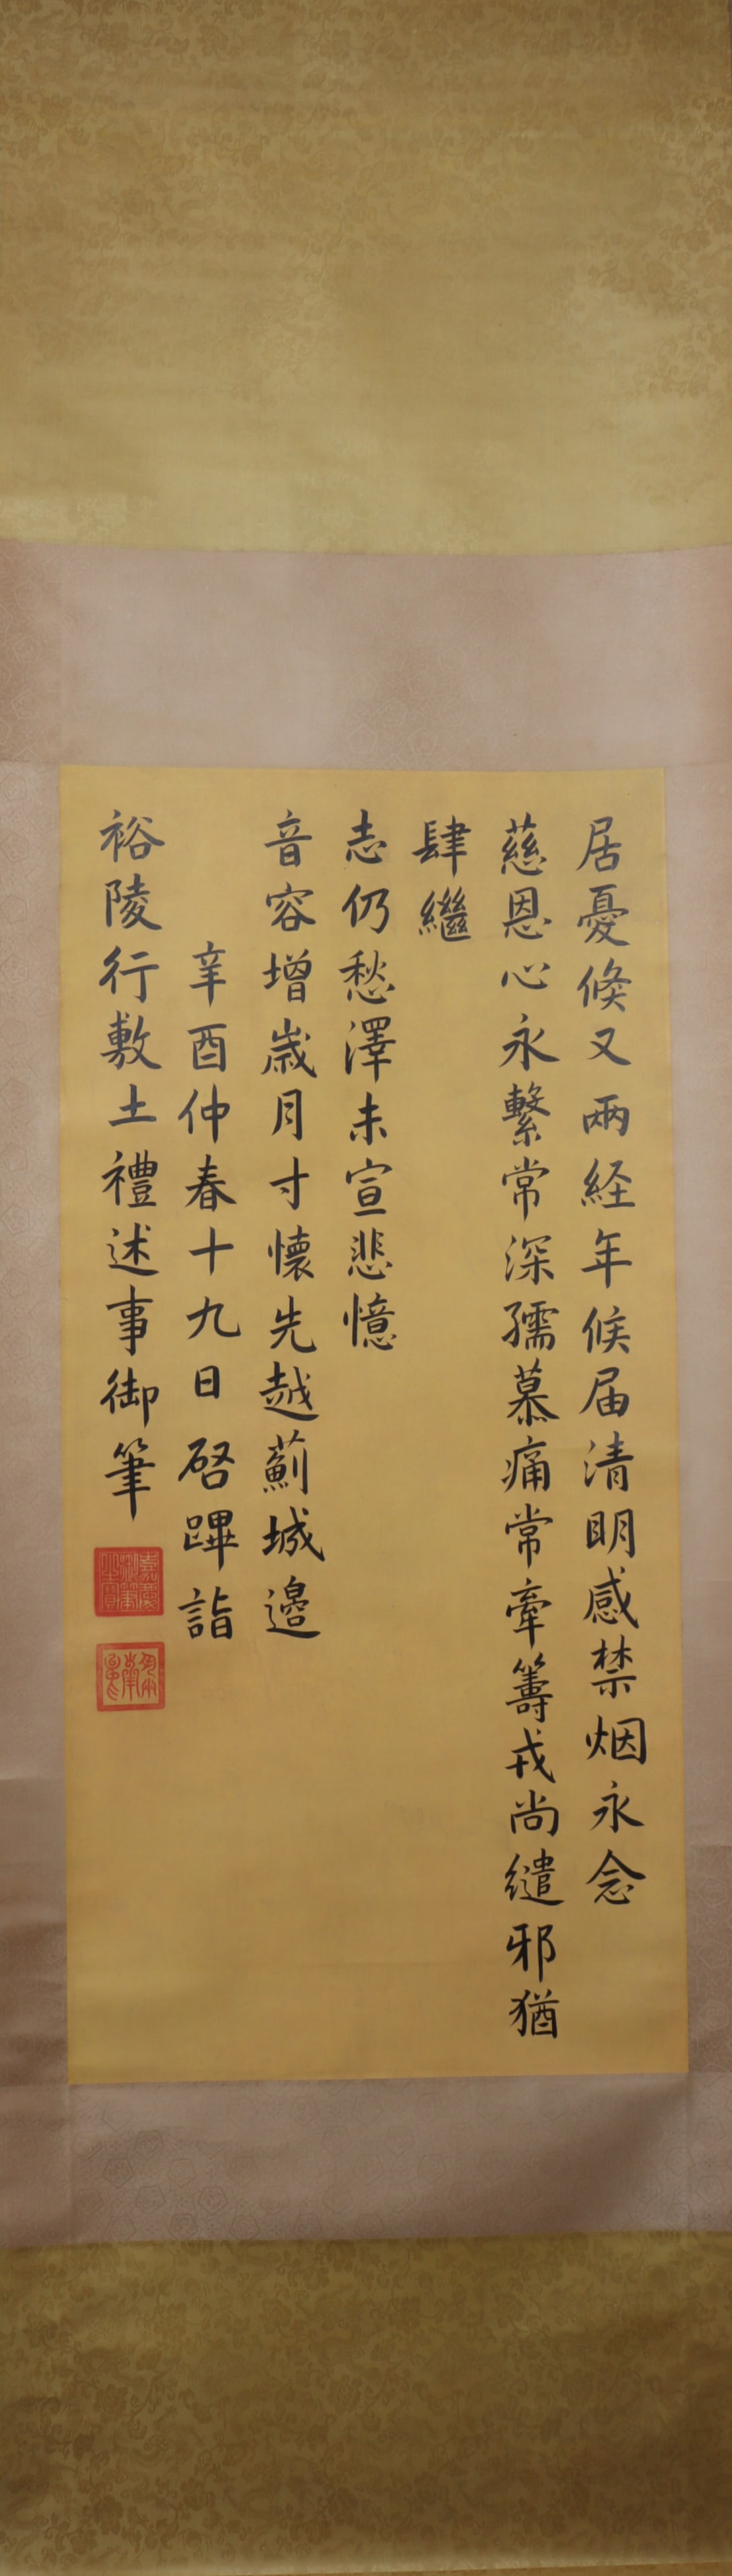 居憂倐又兩経年候届清明感禁烟永念
慈恩心永繫常深孺慕痛常牽籌戎尚繾邪猶
肆繼
志仍愁澤未宣悲憶
音容增歲月寸懷先越薊城邉
辛酉仲春十九日啓蹕詣
裕陵行敷土禮述事御筆
嘉慶御筆之寶